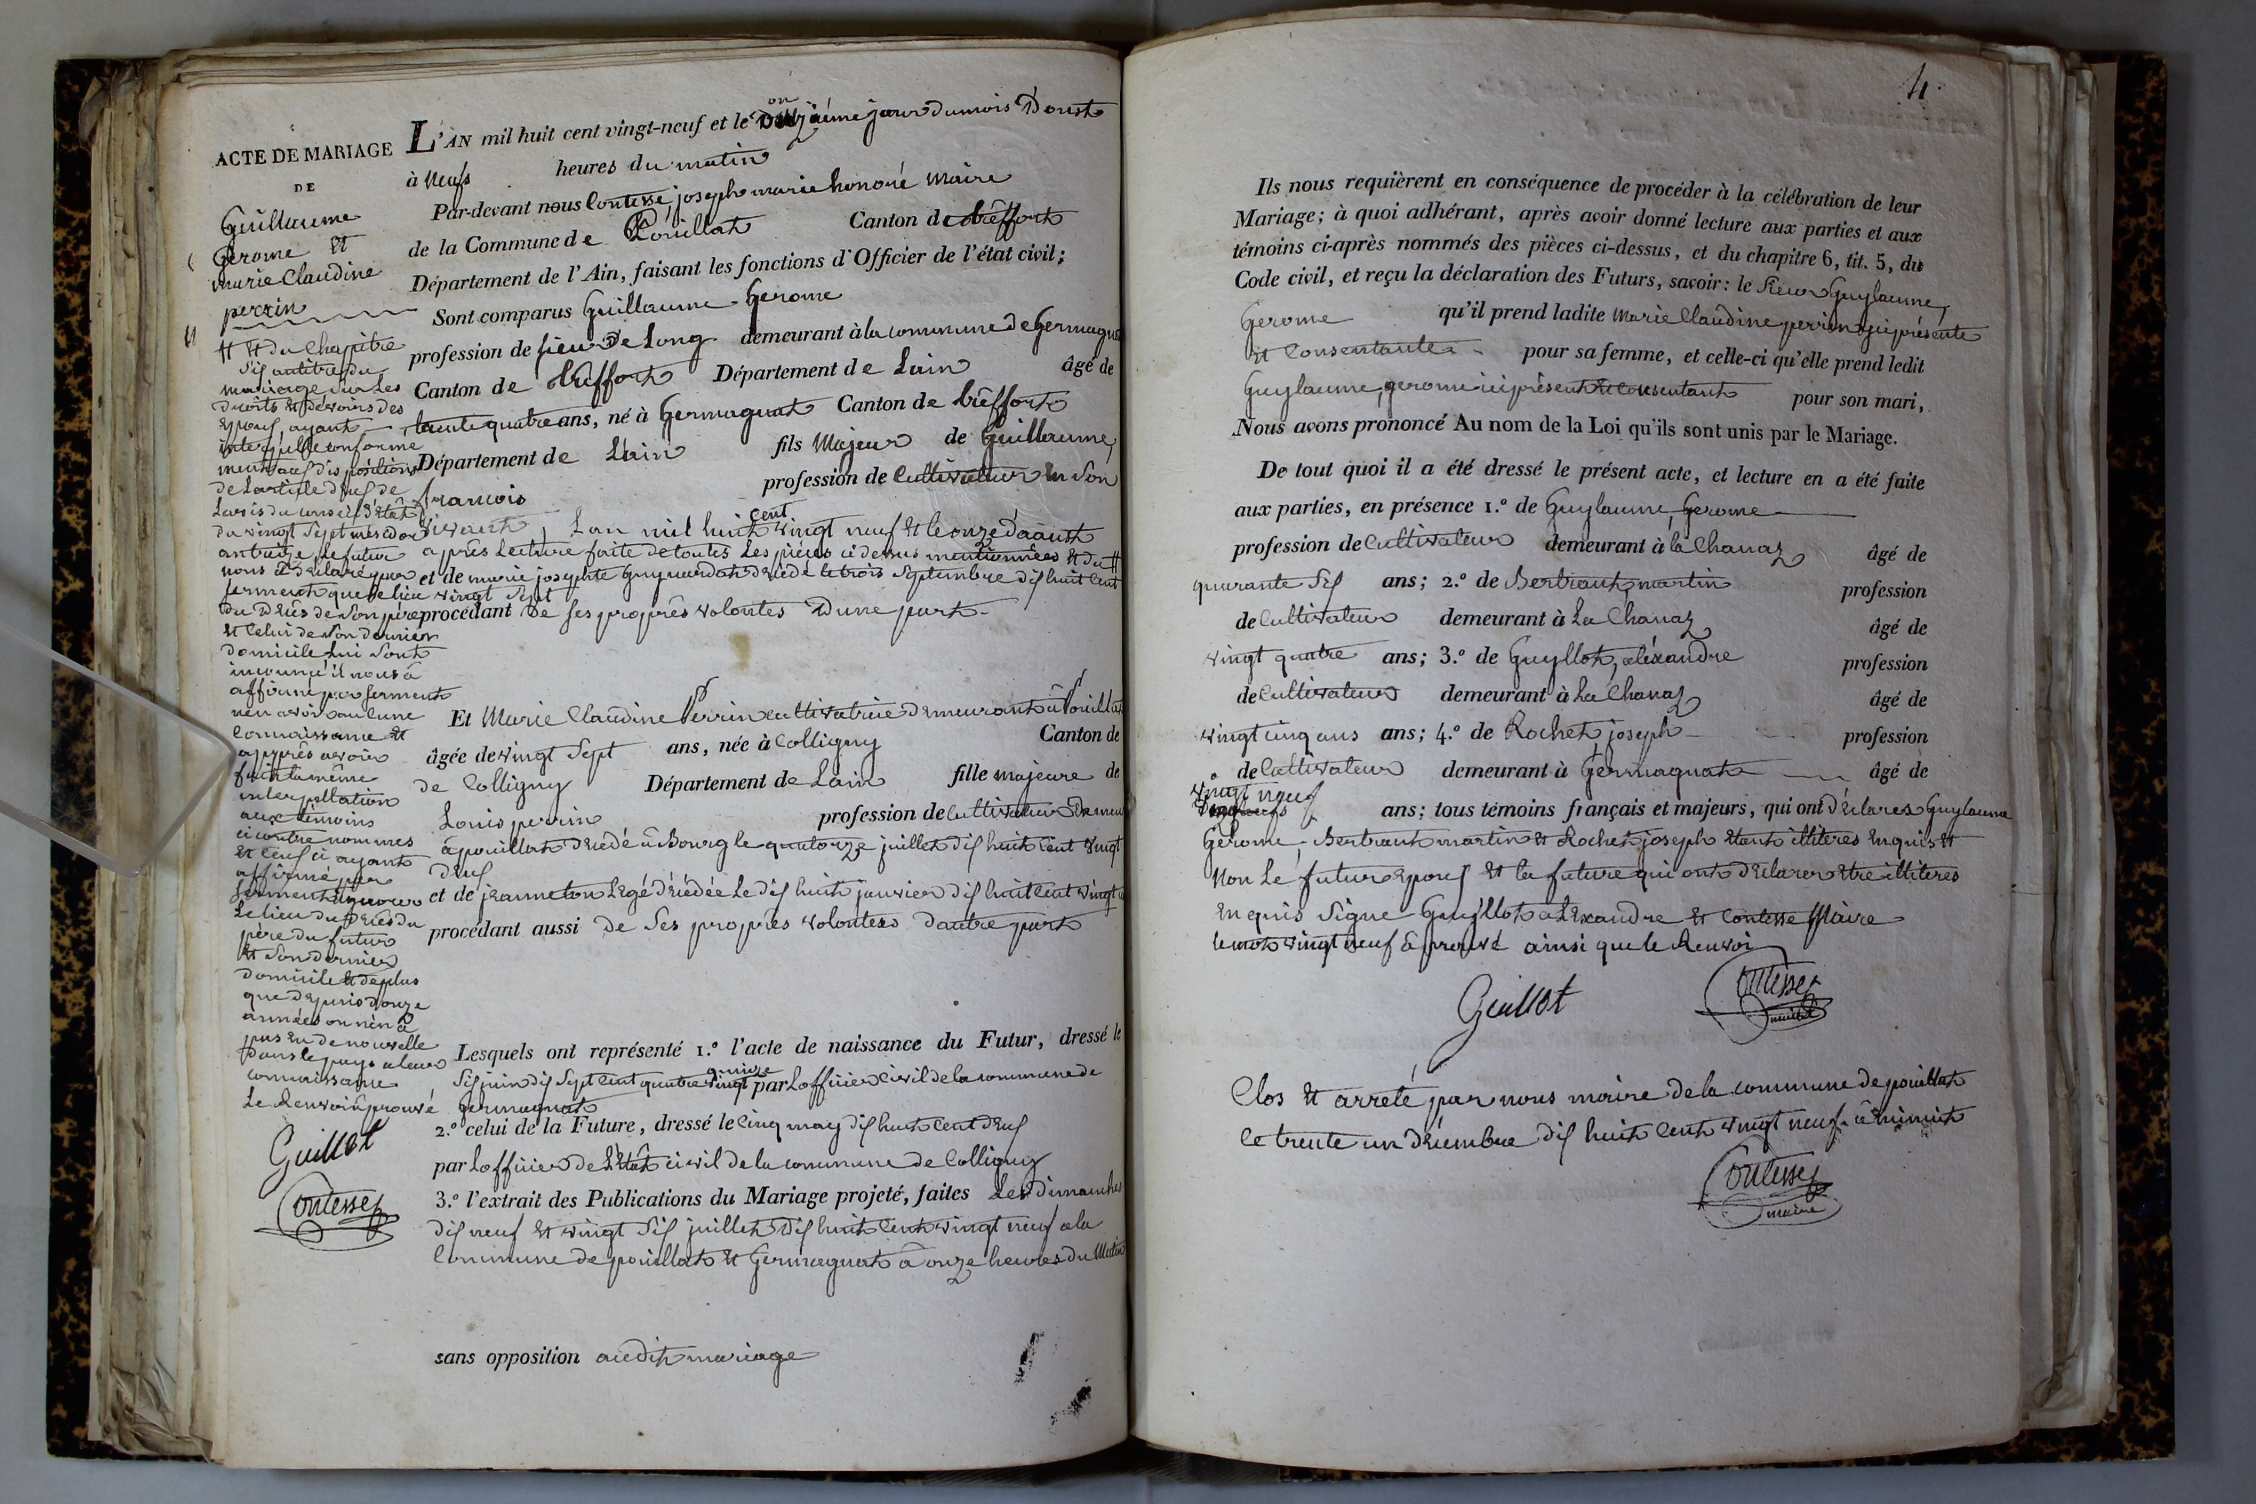 ACTE DE MARIAGE
DE
Guillaume
Gerome et
marie Claudine
perrin
L'AN mil huit cent vingt-neuf et le onzième jour du mois Doust
à neufs heures du matin
Par-devant nous Contesse, joseph marie honoré Maire
de la Commune de Pouillat Canton de trêffort
Département de l'Ain, faisant les fonctions d'Officier de l'état civil;
Sont comparus Guillaume Gerome
profession de sieur De Long demeurant à la commune de Germagnat
Canton de trêffort Département de Lain âgé de
trente quatre ans, né à Germagnat Canton de trêffort
Département de Lain fils Majeur de Guillaume
francois profession de Cultivateur en son
vivant, Lan mil huit cent vingt neuf et le onze daoust
après Lecture faite de toutes Les pièces ci desus mentionnées et du #
et de marie josephte Guynardat décédé le trois Septembre dix huit Cent
vingt Sept
procédant De ses propres volontes Dune part
# et du Chapitre
six autitre du
mariage sur Les
droits et devoirs des
Epoux, ayant
interpellé conforme
ment aux dispositions
de Larticle deux de
Lavis du conseil d'Etat
du vingt Sept messidor
an treize, Le futur
nous a déclaré par
serment que le lieu
du décès de Son père
et Celui de Son dernier
domicile Lui sont
inconnu il nous à
affirmé par serment
nen avoir aucune
Connaissance et
appprès avoir
fait la même
interpellation
aux témoins
ci contre nommes
et Ceux ci ayant
affirmé par
serment ignorer
Le lieu du décès du
père du futur
et Son dernier
domicile et deplus
que depuis douze
années on nèn à
pas Eu de nouvelle
Dans le pays a leur
connaissance
Le Renvoi àprouvé
Guillot
Contesse
Et Marie Claudine Perrin cultivatrice Demeurant à Pouillat
âgée de vingt Sept ans, née à Colligny Canton de
de Colligny Département de Lain fille majeure de
Louis perrin profession de Cultivateur Demeu
à pouillat décédé à Bourg le quatorze juillet dix huit Cent vingt
deux
et de jeanneton Legé décédée Le dix huit janvier dix huit Cent vingt
procédant aussi De Ses propres volontes dautre part
Lesquels ont représenté 1.° l'acte de naissance du Futur, dressé le
Six juin dix Sept Cent quatre vingt quinze par Lofficier Civil de la commune de
germagnat
2.° celui de la Future, dressé le Cinq may dix huit Cent deux
par Lofficier de Létat civil de la commune de Colligny
3.° l'extrait des Publications du Mariage projeté, faites Les dimanches
dix neuf et vingt Six juillet dix huit Cent vingt neuf a la
Commune de pouillat et Germagnat à onze heures du Matin
sans opposition audit mariage
4
Ils nous requièrent en conséquence de procéder à la célébration de leur
Mariage; à quoi adhérant, après avoir donné lecture aux parties et aux
témoins ci-après nommés des pièces ci-dessus, et du chapitre 6, tit. 5, du
Code civil, et reçu la déclaration des Futurs, savoir: le Sieur Guylaume,
Gerome qu'il prend ladite Marie Claudine perrin ici présente
et Consentante pour sa femme, et celle-ci qu'elle prend ledit
Guylaume, gerome ici présent et Consentant pour son mari,
Nous avons prononcé Au nom de la Loi qu'ils sont unis par le Mariage.
De tout quoi il a été dressé le présent acte, et lecture en a été faite
aux parties, en présence 1.° de Guylaume Gerome
profession de Cultivateur demeurant à la Chanaz âgé de
quarante Six ans; 2.° de Bertrant martin profession
de Cultivateur demeurant à La Chanaz âgé de
vingt quatre ans; 3.° de Guyllot, aléxandre profession
de Cultivateur demeurant à La Chanaz âgé de
vingt cinq ans ans; 4.° de Rochet joseph profession
de Cultivateur demeurant à Germagnat âgé de
vingt neuf ans; tous témoins français et majeurs, qui ont déclares Guylaume
Gerome, Bertrant martin et Rochet joseph Etant illiteres Enquis et
Non Le futur Epoux et la future qui ont déclarer Etre illiteres
Enquis Signe Guyllot alexandre et Contesse Maire
le mot vingt neuf àprouvé ainsi que le Renvoi
Guillot
Contesse
maire
Clos et arrêté par nous maire de la commune de pouillat
Le trente un décembre dix huit Cent vingt neuf. à minuit
Contesse
maire